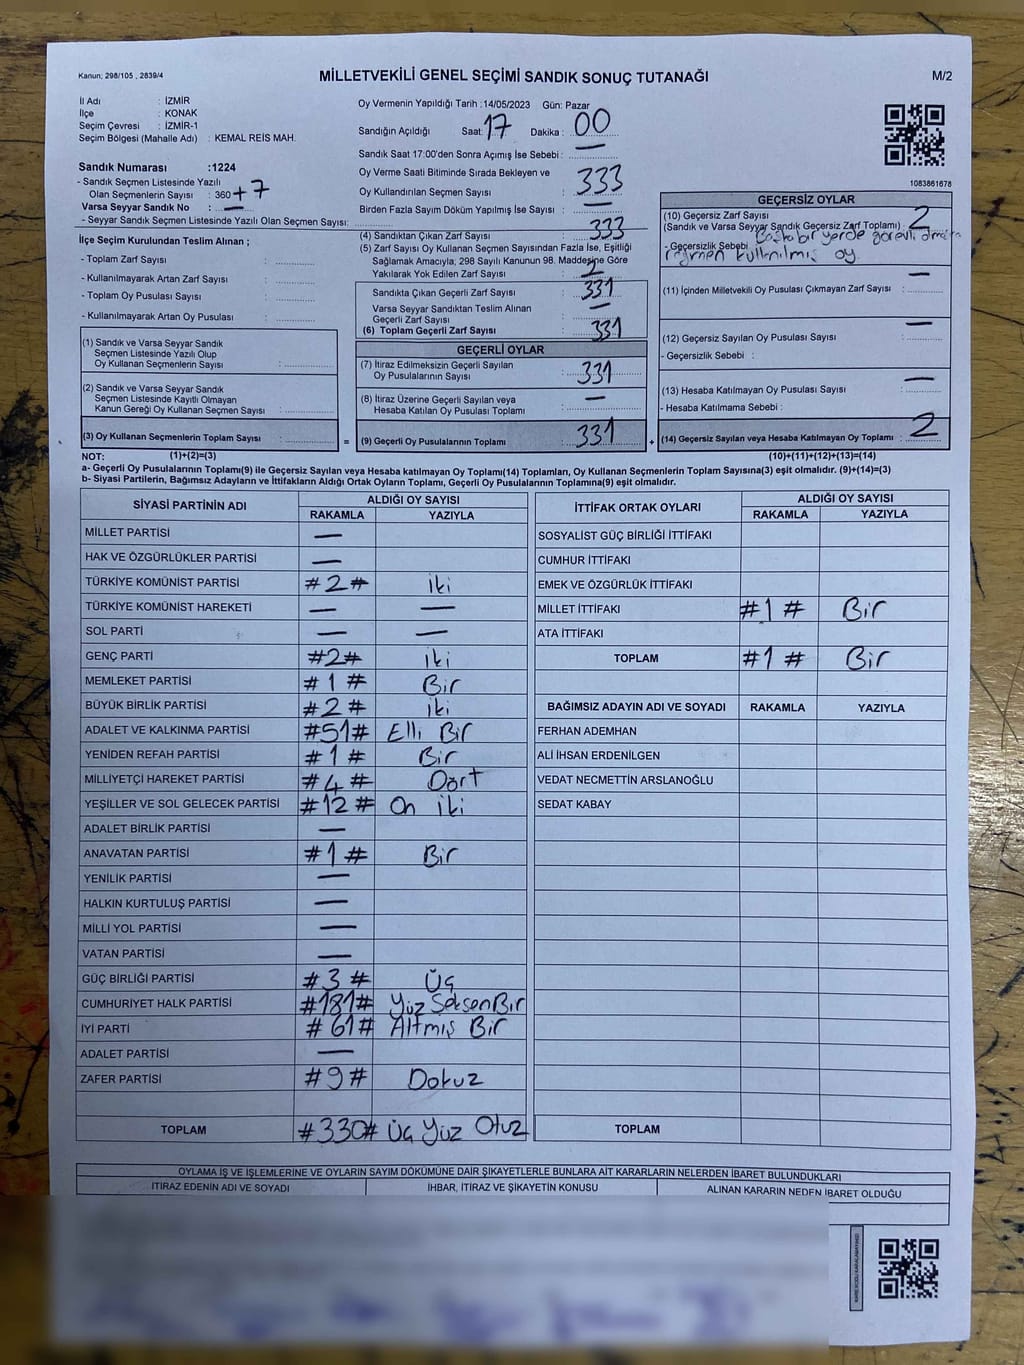 Kanun; 298/105 , 2839/4
MİLLETVEKİLİ GENEL SEÇİMİ SANDIK SONUÇ TUTANAĞI
M/2
İl Adı : İZMİR
İlçe : KONAK
Seçim Çevresi : İZMİR-1
Seçim Bölgesi (Mahalle Adı) : KEMAL REİS MAH.
Sandık Numarası :1224
- Sandık Seçmen Listesinde Yazılı
Olan Seçmenlerin Sayısı : 360 +7
Varsa Seyyar Sandık No : —
- Seyyar Sandık Seçmen Listesinde Yazılı Olan Seçmen Sayısı:
İlçe Seçim Kurulundan Teslim Alınan ;
- Toplam Zarf Sayısı :
- Kullanılmayarak Artan Zarf Sayısı :
- Toplam Oy Pusulası Sayısı :
- Kullanılmayarak Artan Oy Pusulası :
(1) Sandık ve Varsa Seyyar Sandık
Seçmen Listesinde Yazılı Olup
Oy Kullanan Seçmenlerin Sayısı :
(2) Sandık ve Varsa Seyyar Sandık
Seçmen Listesinde Kayıtlı Olmayan
Kanun Gereği Oy Kullanan Seçmen Sayısı :
(3) Oy Kullanan Seçmenlerin Toplam Sayısı :
Oy Vermenin Yapıldığı Tarih :14/05/2023 Gün: Pazar
Sandığın Açıldığı Saat: 17 Dakika : 00
Sandık Saat 17:00'den Sonra Açımış İse Sebebi : —
Oy Verme Saati Bitiminde Sırada Bekleyen ve
Oy Kullandırılan Seçmen Sayısı : 333
Birden Fazla Sayım Döküm Yapılmış İse Sayısı : —
(4) Sandıktan Çıkan Zarf Sayısı : 333
(5) Zarf Sayısı Oy Kullanan Seçmen Sayısından Fazla İse, Eşitliği
Sağlamak Amacıyla; 298 Sayılı Kanunun 98. Maddesine Göre
Yakılarak Yok Edilen Zarf Sayısı : 2
Sandıkta Çıkan Geçerli Zarf Sayısı : 331
Varsa Seyyar Sandıktan Teslim Alınan
Geçerli Zarf Sayısı : —
(6) Toplam Geçerli Zarf Sayısı : 331
GEÇERLİ OYLAR
(7) İtiraz Edilmeksizin Geçerli Sayılan
Oy Pusulalarının Sayısı : 331
(8) İtiraz Üzerine Geçerli Sayılan veya
Hesaba Katılan Oy Pusulası Toplamı : —
= (9) Geçerli Oy Pusulalarının Toplamı : 331 +
1083861678
GEÇERSİZ OYLAR
(10) Geçersiz Zarf Sayısı
(Sandık ve Varsa Seyyar Sandık Geçersiz Zarf Toplamı) : 2
- Geçersizlik Sebebi : Başka bir yerde görevli
rağmen kullanılmış oy.
(11) İçinden Milletvekili Oy Pusulası Çıkmayan Zarf Sayısı : —
(12) Geçersiz Sayılan Oy Pusulası Sayısı : —
- Geçersizlik Sebebi :
(13) Hesaba Katılmayan Oy Pusulası Sayısı : —
- Hesaba Katılmama Sebebi :
(14) Geçersiz Sayılan veya Hesaba Katılmayan Oy Toplamı : 2
NOT: (1)+(2)=(3) (10)+(11)+(12)+(13)=(14)
a- Geçerli Oy Pusulalarının Toplamı(9) ile Geçersiz Sayılan veya Hesaba katılmayan Oy Toplamı(14) Toplamları, Oy Kullanan Seçmenlerin Toplam Sayısına(3) eşit olmalıdır. (9)+(14)=(3)
b- Siyasi Partilerin, Bağımsız Adayların ve İttifakların Aldığı Ortak Oyların Toplamı, Geçerli Oy Pusulalarının Toplamına(9) eşit olmalıdır.
SİYASİ PARTİNİN ADI ALDIĞI OY SAYISI
RAKAMLA YAZIYLA
MİLLET PARTİSİ —
HAK VE ÖZGÜRLÜKLER PARTİSİ —
TÜRKİYE KOMÜNİST PARTİSİ #2# İki
TÜRKİYE KOMÜNİST HAREKETİ — —
SOL PARTİ — —
GENÇ PARTİ #2# İki
MEMLEKET PARTİSİ #1# Bir
BÜYÜK BİRLİK PARTİSİ #2# İki
ADALET VE KALKINMA PARTİSİ #51# Elli Bir
YENİDEN REFAH PARTİSİ #1# Bir
MİLLİYETÇİ HAREKET PARTİSİ #4# Dört
YEŞİLLER VE SOL GELECEK PARTİSİ #12# On İki
ADALET BİRLİK PARTİSİ —
ANAVATAN PARTİSİ #1# Bir
YENİLİK PARTİSİ —
HALKIN KURTULUŞ PARTİSİ —
MİLLİ YOL PARTİSİ —
VATAN PARTİSİ —
GÜÇ BİRLİĞİ PARTİSİ #3# Üç
CUMHURİYET HALK PARTİSİ #181# Yüz Seksen Bir
İYİ PARTİ #61# Altmış Bir
ADALET PARTİSİ —
ZAFER PARTİSİ #9# Dokuz
TOPLAM #330# Üç Yüz Otuz
İTTİFAK ORTAK OYLARI ALDIĞI OY SAYISI
RAKAMLA YAZIYLA
SOSYALİST GÜÇ BİRLİĞİ İTTİFAKI
CUMHUR İTTİFAKI
EMEK VE ÖZGÜRLÜK İTTİFAKI
MİLLET İTTİFAKI #1# Bir
ATA İTTİFAKI
TOPLAM #1# Bir
BAĞIMSIZ ADAYIN ADI VE SOYADI RAKAMLA YAZIYLA
FERHAN ADEMHAN
ALİ İHSAN ERDENİLGEN
VEDAT NECMETTİN ARSLANOĞLU
SEDAT KABAY
TOPLAM
OYLAMA İŞ VE İŞLEMLERİNE VE OYLARIN SAYIM DÖKÜMÜNE DAİR ŞİKAYETLERLE BUNLARA AİT KARARLARIN NELERDEN İBARET BULUNDUKLARI
İTİRAZ EDENİN ADI VE SOYADI İHBAR, İTİRAZ VE ŞİKAYETİN KONUSU ALINAN KARARIN NEDEN İBARET OLDUĞU